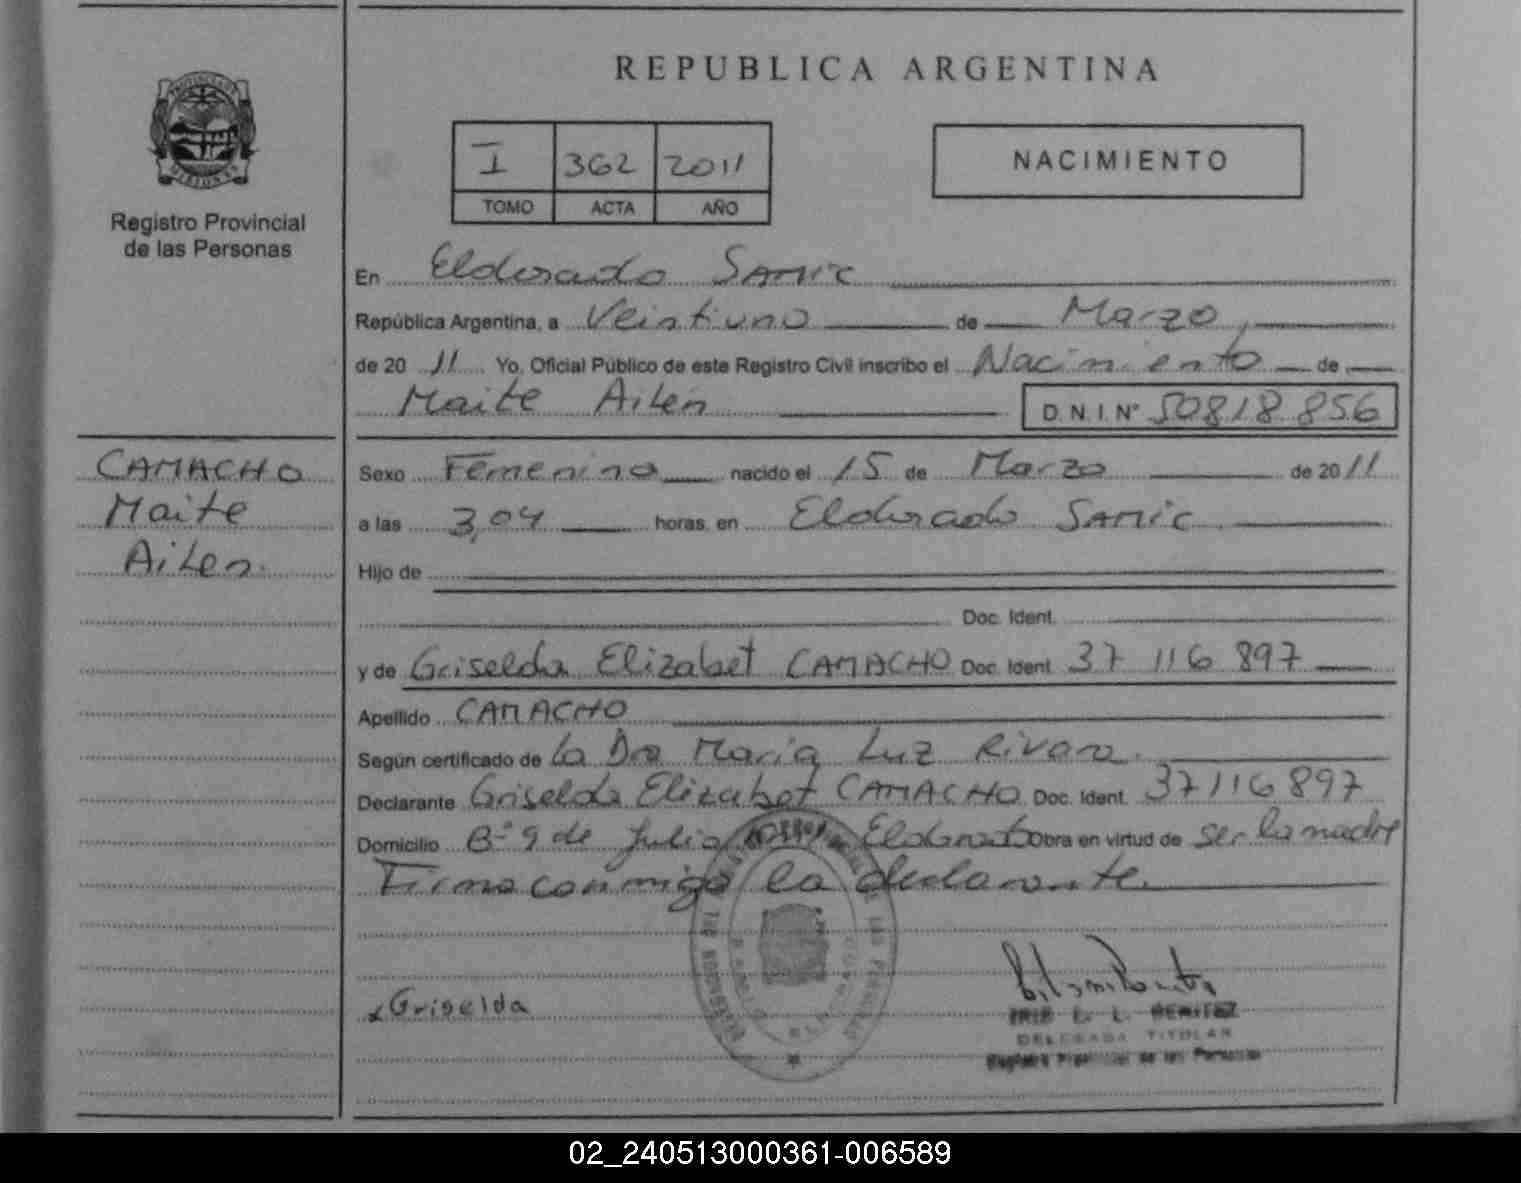 REPUBLICA ARGENTINA
I 362 2011
TOMO ACTA AÑO
NACIMIENTO
Registro Provincial
de las Personas
En Eldorado SAMIC
República Argentina, a Veintiuno de Marzo,
de 20 11 Yo, Oficial Público de este Registro Civil inscribo el Nacimiento de
Maite Ailén D.N.I. Nº 50818 856
CAMACHO
Maite
Ailen.
Sexo Femenino nacido el 15 de Marzo de 20 11
a las 3,04 horas, en Eldorado SAMIC.
Hijo de
Doc. Ident.
y de Griselda Elizabet CAMACHO Doc. Ident. 37 116 897
Apellido CAMACHO
Según certificado de la Dra Maria Luz Rivara.
Declarante Griselda Elizabet CAMACHO Doc. Ident. 37116897
Domicilio Bº 9 de Julio Eldorado Obra en virtud de ser la madre
Firma conmigo la declarante.
Griselda
IRIS E. L. BENITEZ
DELEGADA TITULAR
Registro Provincial de las Personas
02_240513000361-006589